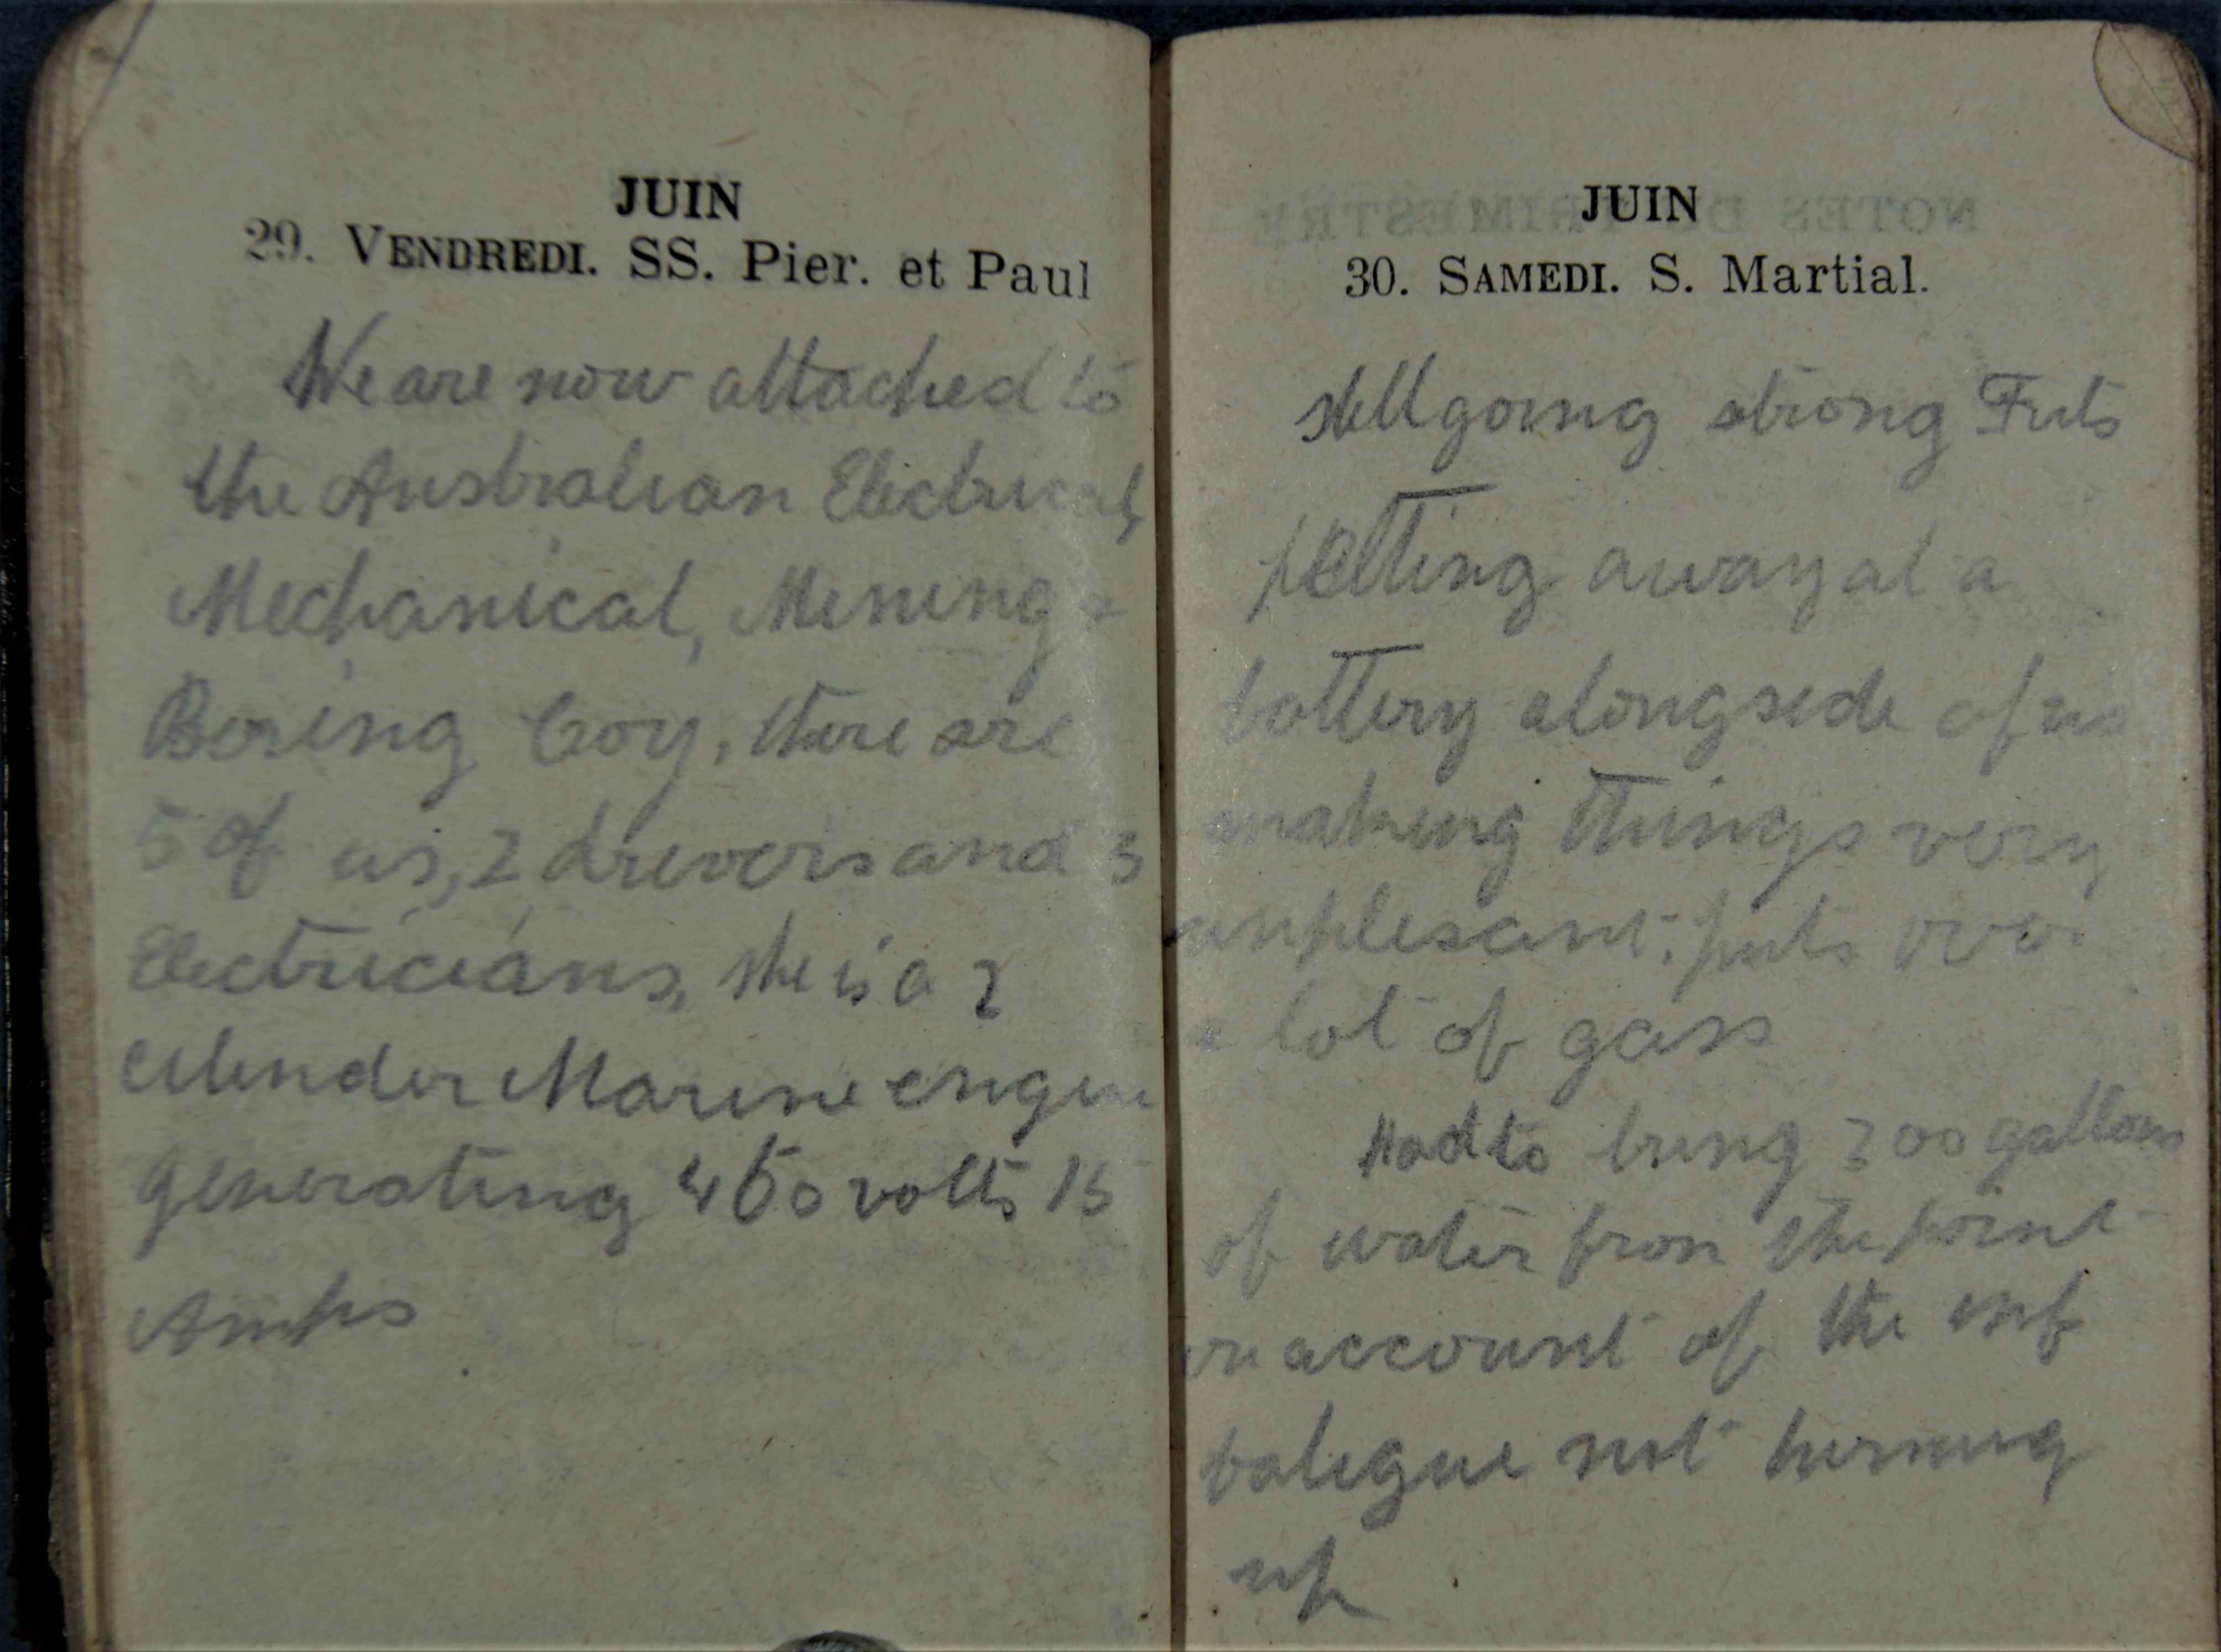 JUIN
29. VENDREDI. SS. Pier. et Paul
We are now attached to
the Australian Electrical,
Mechanical, Mining &
Boring Coy, there are
5 of us, 2 drivers and 3
Electricians, she is a 2
cilinder Marine engine
generating 460 volts 15
Amps
JUIN
30. SAMEDI. S. Martial.
still going strong Frits
pelting away at a
battery alongside of us
making things very
unplesant, puts over
a lot of gass
Had to bring 200 gallons
of water from the point
on account of the inf
batigue not turning
up